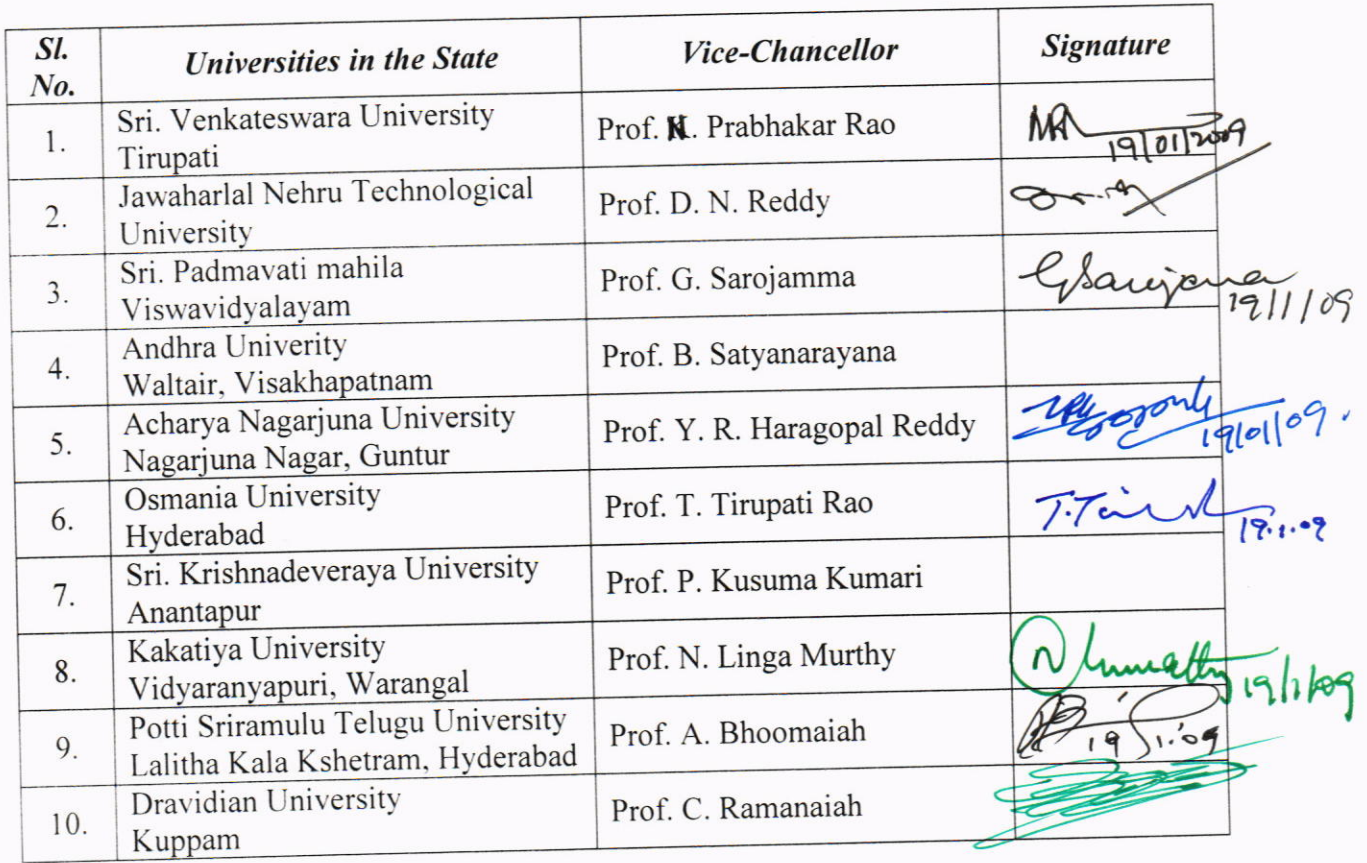 Sl. No. Universities in the State Vice-Chancellor Signature
1. Sri. Venkateswara University
Tirupati
Prof. N. Prabhakar Rao
19/01/2009
2. Jawaharlal Nehru Technological
University
Prof. D. N. Reddy
3. Sri. Padmavati mahila
Viswavidyalayam
Prof. G. Sarojamma
GSarojana
19/1/09
4. Andhra Univerity
Waltair, Visakhapatnam
Prof. B. Satyanarayana
5. Acharya Nagarjuna University
Nagarjuna Nagar, Guntur
Prof. Y. R. Haragopal Reddy
19/01/09.
6. Osmania University
Hyderabad
Prof. T. Tirupati Rao
19.1.09
7. Sri. Krishnadeveraya University
Anantapur
Prof. P. Kusuma Kumari
8. Kakatiya University
Vidyaranyapuri, Warangal
Prof. N. Linga Murthy
19/1/09
9. Potti Sriramulu Telugu University
Lalitha Kala Kshetram, Hyderabad
Prof. A. Bhoomaiah
19.1.09
10. Dravidian University
Kuppam
Prof. C. Ramanaiah